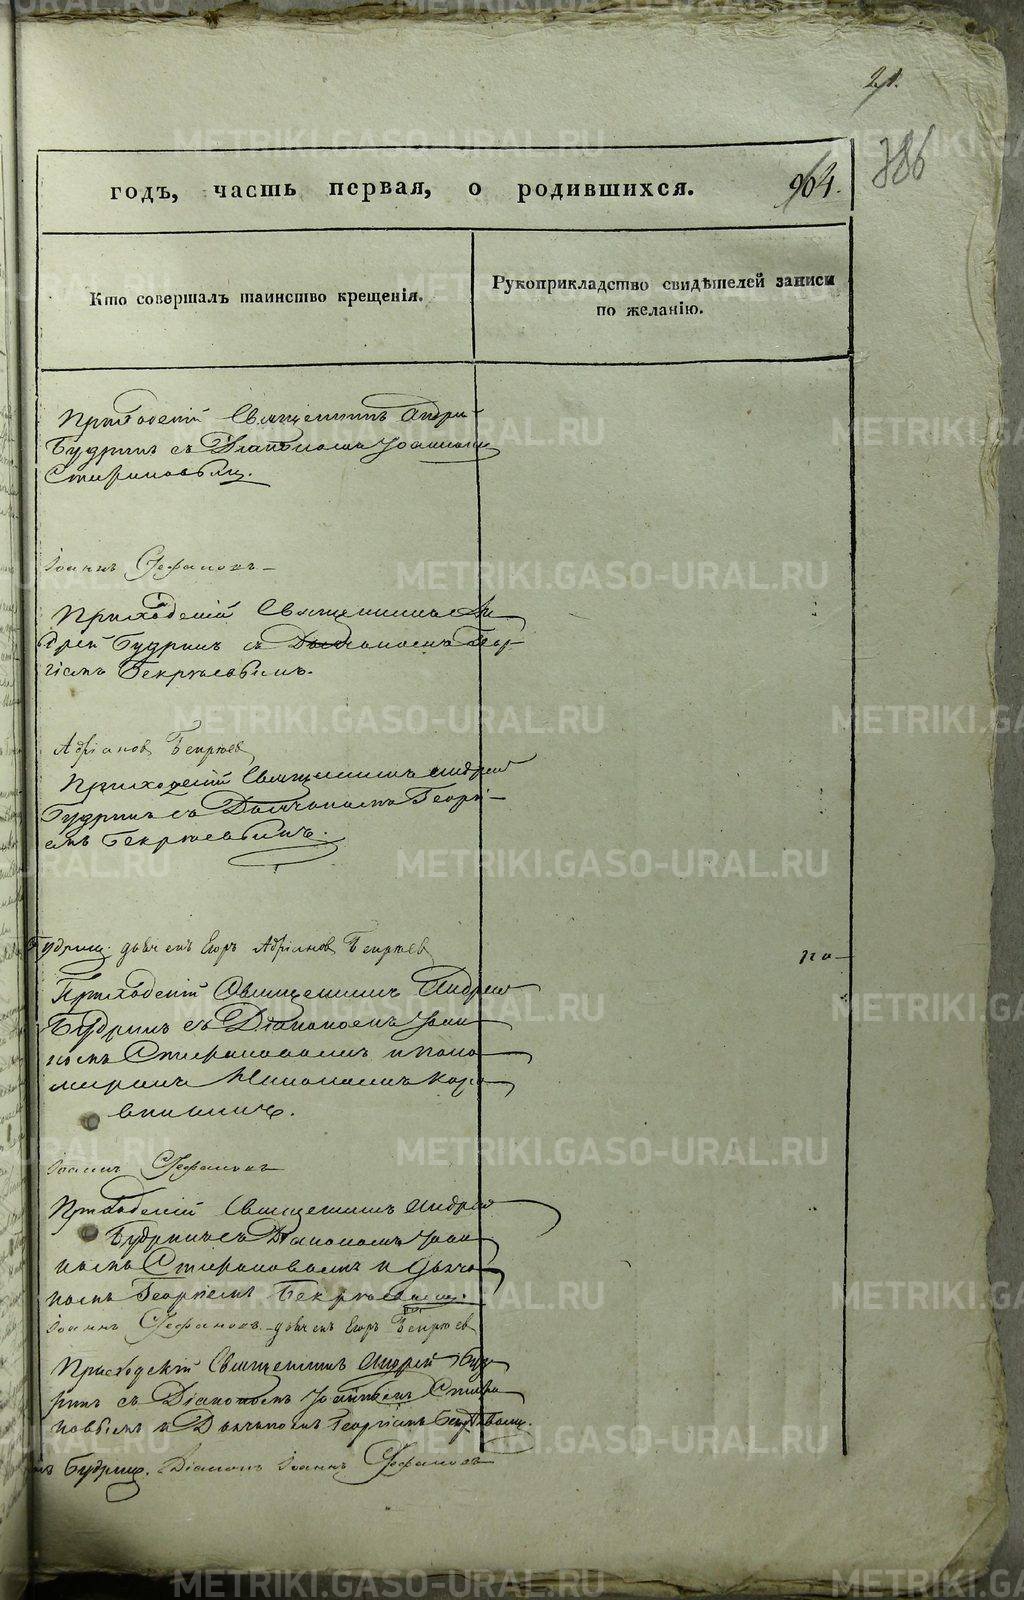 21.
386
годъ, часть первая, о родившихся. 964.
Кто совершалъ таинство крещенія.
Рукоприкладство свидѣтелей записи
по желанію.
Приходскій Священникъ Андрей
Будринъ съ Діакономъ Іоанномъ
Стефановымъ.
Іоаннъ Стефановъ
Приходскій Священникъ Ан
дрей Будринъ съ Дьячкомъ Геор
гіемъ Бекрюевымъ.
Адріановъ Бекрюевъ
Приходскій Священникъ Андрей
Будринъ съ Дьячкомъ Георгі
емъ Бекрюевымъ.
Будринъ. дьячекъ Егоръ Адріановъ Бекрюевъ
по
Приходскій Священникъ Андрей
Будринъ съ Діакономъ Іоан
номъ Стефановомъ и поно
маремъ Николаемъ
Іоаннъ Стефановъ
Приходскій Священникъ Андрей
Будринъ съ Діакономъ Іоан
номъ Стефановомъ и Дьяч
комъ Георгіемъ Бекрюевымъ.
Іоаннъ Стефановъ дьячекъ Егоръ Бекрюевъ
Приходскій Священникъ Андрей Буд
ринъ съ Діакономъ Іоанномъ Стефа
новымъ и Дьячкомъ Георгіемъ Бекрюевымъ.
Будринъ. Діаконъ Іоаннъ Стефановъ
METRIKI.GASO-URAL.RU